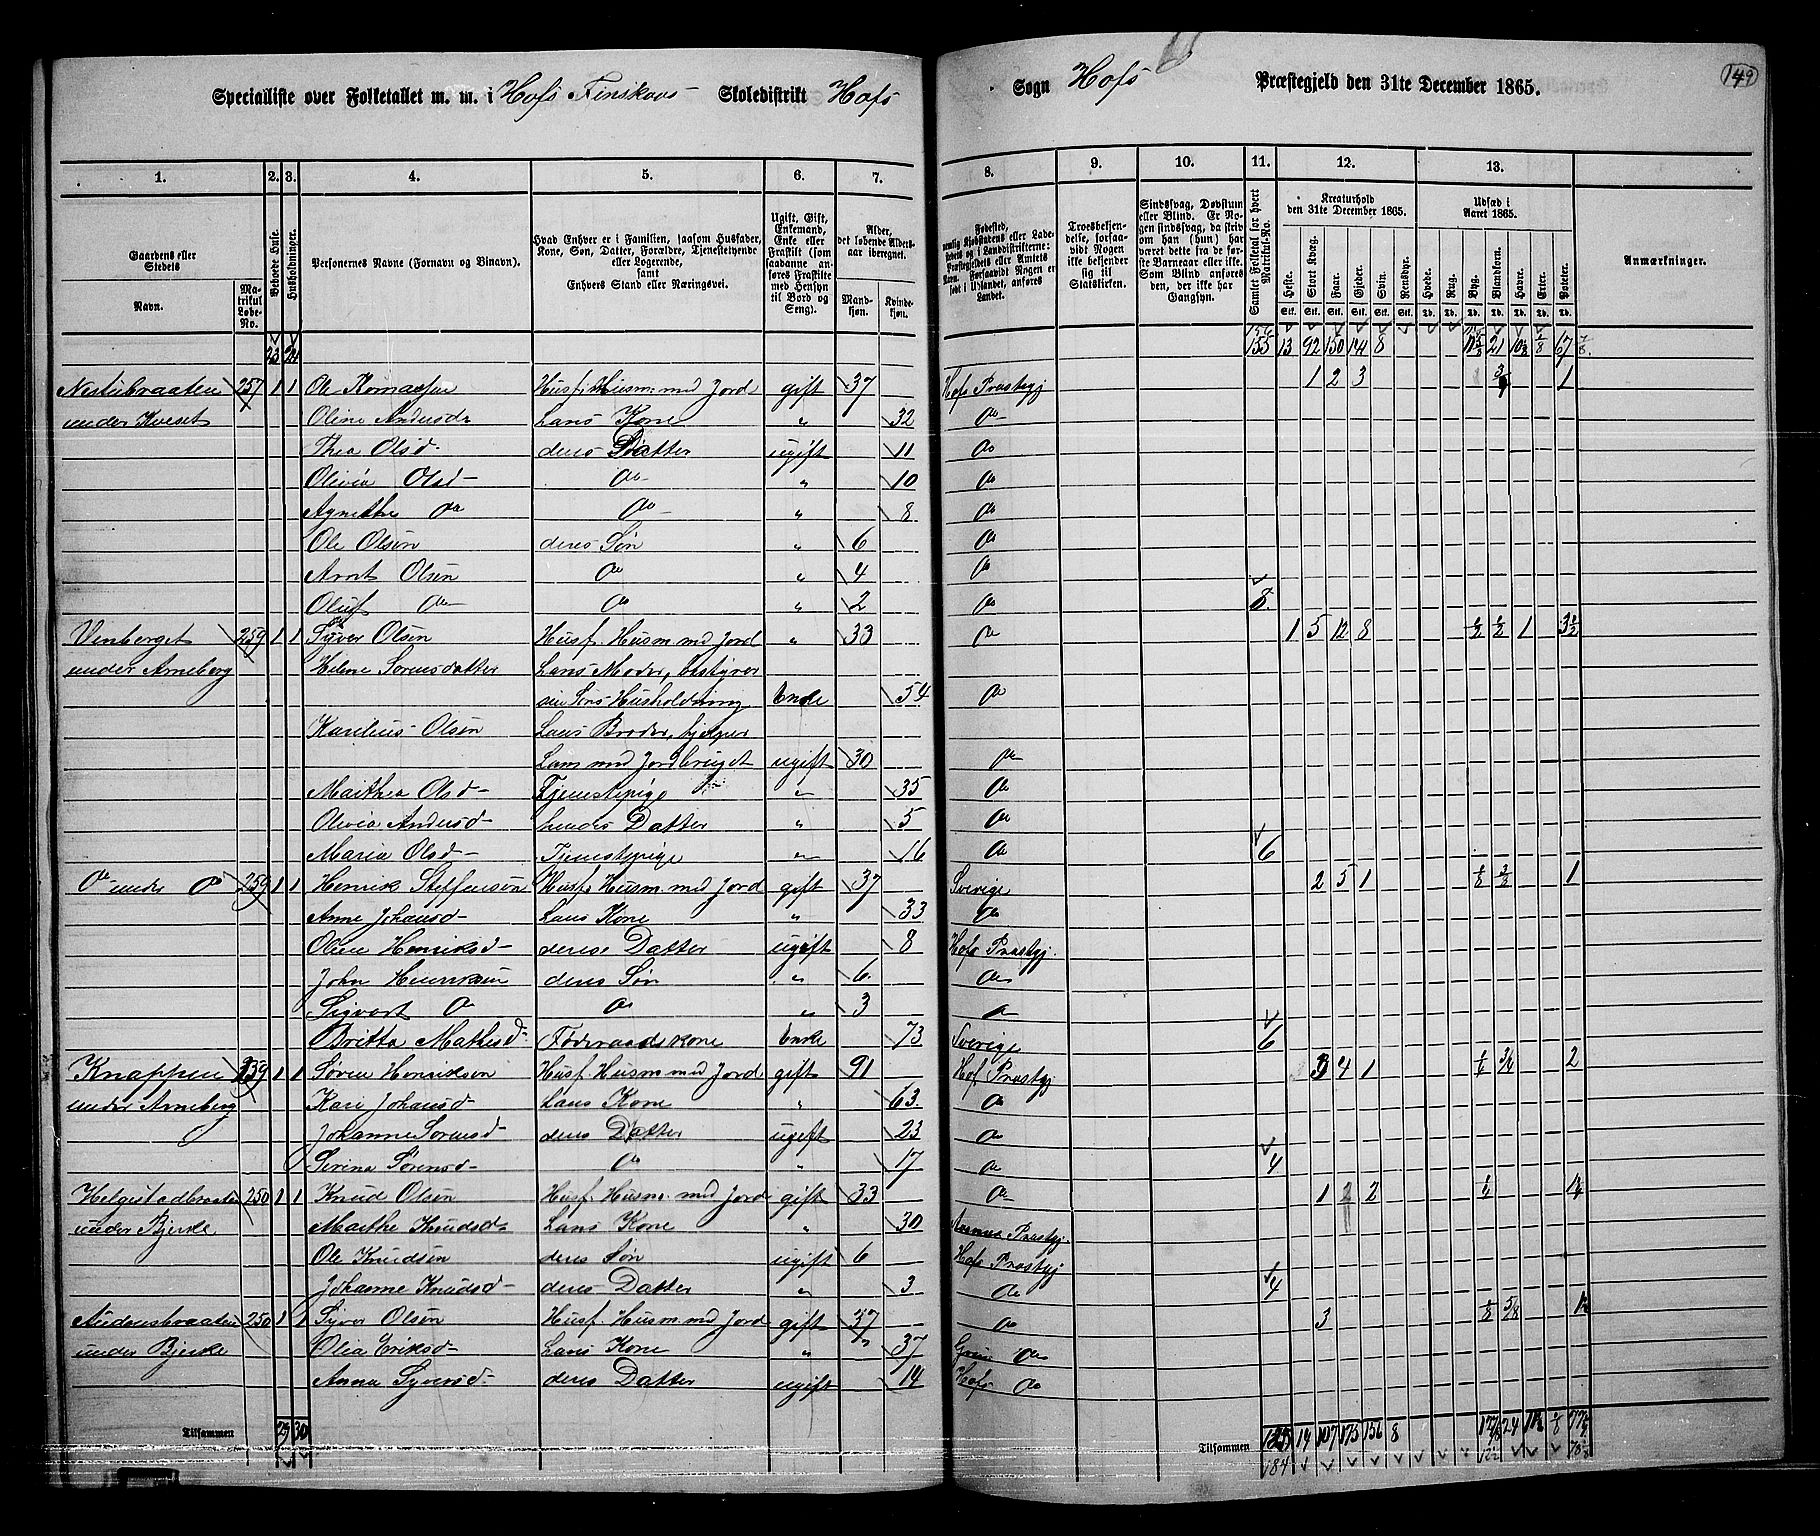 149
Specialliste over Folketallet m. m. i Hofs Finskovs Skoledistrikt Hofs Sogn Hofs Præstegjeld den 31te December 1865.
1. 2. 3. 4. 5. 6. 7. 8. 9. 10. 11. 12. 13.
Gaardens eller Stedets
Navn.
Matrikul Løbe-No.
Beboede Huse.
Husholdninger.
Personernes Navne (Fornavn og Binavn).
Hvad Enhver er i Familien, saasom Husfader, Kone, Søn, Datter, Forældre, Tjenestetyende eller Logerende, samt Enhvers Stand eller Næringsvei.
Ugift, Gift, Enkemand, Enke eller Fraskilt (som saadanne anføres Fraskilte med Hensyn til Bord og Seng).
Alder, det løbende Aldersaar iberegnet.
Mandkjøn. Kvindekjøn.
Fødested,
Troesbekjendelse, forsaavidt Nogen ikke bekjender sig til Statskirken.
Sindssvag, Døvstum eller Blind. Er Nogen sindssvag, da skriv om han (hun) har været dette før de første Barneaar eller ikke. Som Blind anføres den, der ikke har Gangsyn.
Samlet Folketal for hvert Matrikul-No.
Kreaturhold den 31te December 1865.
Heste. Stort Kvæg. Faar. Gjeder. Svin. Rensdyr.
Udsæd i Aaret 1865.
Hvede. Rug. Byg. Blandkorn. Havre. Erter. Poteter.
Anmærkninger.
23 24 155 13 92 150 141 8 21 67
Nestubraaten 257 1 1 Ole Husf. Husm. med Jord gift 37 Hofs Præstgj 1 2 3 1
under Kveset Oline Andersdr hans Kone " 32 do
Thea Olsd. deres Datter ugift 11 do
Olivia Olsd do " 10 do
Agnethe do do " 8 do
Ole Olsen deres Søn " 6 do
Arnt Olsen do " 4 do
Oluf do do " 2 do
Vinberget 259 1 1 Syver Olsen Husf. Husm. med Jord " 33 do 1 5 12 8 1/2 1/2 1 3 1/2
under Arneberg Helene Sørensdatter hans Moder, bestyrer
sin Søns Husholdning Enke 54 do
Karelius Olsen hans Broder, hjelper
ham med Jordbruget ugift 30 do
Marthea Olsd Tjenestepige " 35 do
Olivia Andersd hendes Datter " 5 do
Maria Olsd Tjenestepige " 16 do 6
do under do 259 1 1 Henrik Steffensen Husf. Husm. med Jord gift 37 Sverige 2 5 1 1/8 1
Anne Johansd hans Kone " 33 do
Oline Henriksd deres Datter ugift 8 Hofs Præstgj.
John Henriksen deres Søn " 6 do
Sigvart do do " 3 do
Britta Mathisd. Føderaadskone Enke 73 Sverige 6
Knappen 259 1 1 Søren Henriksen Husf. Husm. med Jord gift 91 Hof Præstgj 3 4 1 3/4 2
under Arneberg Kari Johansd hans Kone " 63 do
Johanne Sørensd deres Datter ugift 23 do
Serina Sørensd do " 17 do 4
Helgestadbraaten 250 1 1 Knud Olsen Husf. Husm. med Jord gift 33 do 1 2 2
under Bjerke Marthe Knudsd hans Kone " 30 Præstgj.
Ole Knudsen deres Søn ugift 6 Hofs Præstgj
Johanne Knudsd deres Datter " 3 do 4
250 1 1 Syver Olsen Husf. Husm. med Jord gift 37 do 3 1/8 5/8
under Bjerke Olia Eriksd hans Kone " 37 do
Anna Syversd. deres Datter ugift 14 Hofs do
Tilsammen 29 30
Tilsammen 14 107 175 156 8 24
184